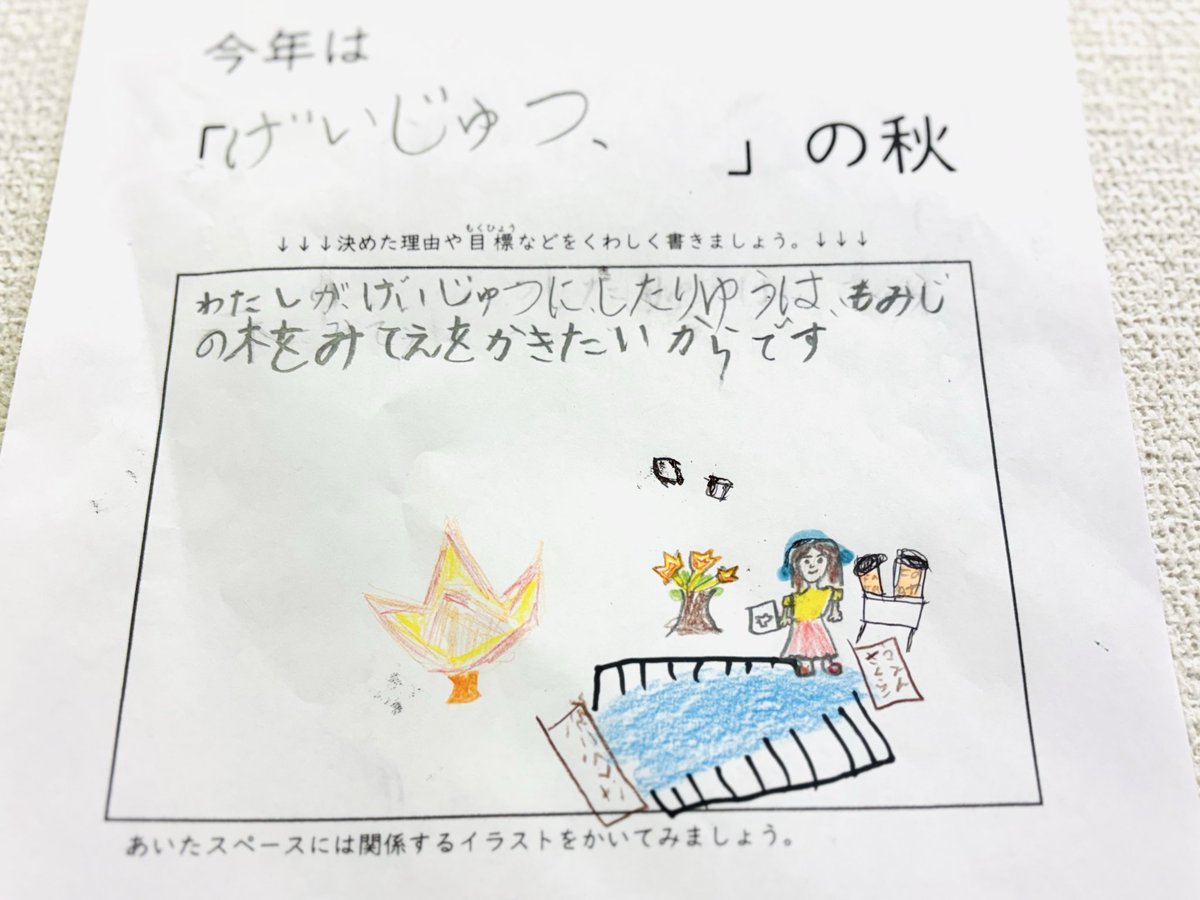 今年は
「げいじゅつ、」の秋
↓↓↓決めた理由や目標などをくわしく書きましょう。↓↓↓
もくひょう
わたしが、げいじゅつに、したりゆうは、もみじ
の木をみてえをかきたいからです
あいたスペースには関係するイラストをかいてみましょう。